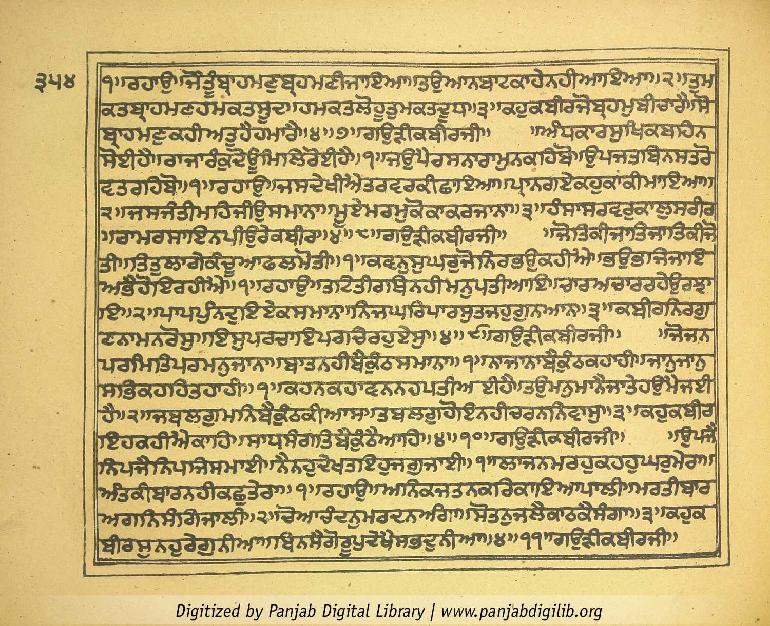 ੩੫੪
੧॥ਰਹਾਉ॥ਜੌਤੂੰਬ੍ਰਾਹਮਣੁਬ੍ਰਹਮਣੀਜਾਇਆ॥ਤਉਆਨਬਾਟਕਾਹੇਨਹੀਆਇਆ॥੨॥ਤੁਮ
ਕਤਬ੍ਰਾਹਮਣਹਮਕਤਸੂਦ॥ਹਮਕਤਲੋਹੂਤੁਮਕਤਦੂਧ॥੩॥ਕਹੁਕਬੀਰਜੋਬ੍ਰਹਮੁਬੀਚਾਰੈ॥ਸੋ
ਬ੍ਰਾਹਮਣੁਕਹੀਅਤੁਹੈਹਮਾਰੈ॥੪॥੭॥ਗਉੜੀਕਬੀਰਜੀ॥ ॥ਅੰਧਕਾਰਸੁਖਿਕਬਹਿਨ
ਸੋਈਹੈ॥ਰਾਜਾਰੰਕੁਦੋਊਮਿਲਿਰੋਈਹੈ॥੧॥ਜਉਪੈਰਸਨਾਰਾਮੁਨਕਹਿਬੋ॥ਉਪਜਤਬਿਨਸਤਰੋ
ਵਤਰਹਿਬੋ॥੧॥ਰਹਾਉ॥ਜਸਦੇਖੀਐਤਰਵਰਕੀਛਾਇਆ॥ਪ੍ਰਾਨਗਏਕਹੁਕਾਕੀਮਾਇਆ॥
੨॥ਜਸਜੰਤੀਮਹਿਜੀਉਸਮਾਨਾ॥ਮੂਏਮਰਮੁਕੋਕਾਕਰਜਾਨਾ॥੩॥ਹੰਸਾਸਰਵਰੁਕਾਲੁਸਰੀਰ
॥ਰਾਮਰਸਾਇਨਪੀਉਰੇਕਬੀਰ॥੪॥੮॥ਗਉੜੀਕਬੀਰਜੀ॥ ॥ਜੋਤਿਕੀਜਾਤਿਜਾਤਿਕੀਜੋ
ਤੀ॥ਤਿਤੁਲਾਗੇਕੰਚੂਆਫਲਮੋਤੀ॥੧॥ਕਵਨੁਸੁਘਰੁਜੋਨਿਰਭਉਕਹੀਐ॥ਭਉਭਜਿਜਾਇ
ਅਭੈਹੋਇਰਹੀਐ॥੧॥ਰਹਾਉ॥ਤਟਿਤੀਰਥਿਨਹੀਮਨੁਪਤੀਆਇ॥ਚਾਰਅਚਾਰਰਹੇਉਰਝਾ
ਇ॥੨॥ਪਾਪਪੁੰਨਦੁਇਏਕਸਮਾਨ॥ਨਿਜਘਰਿਪਾਰਸੁਤਜਹੁਗੁਨਆਨ॥੩॥ਕਬੀਰਨਿਰਗੁ
ਣਨਾਮਨਰੋਸੁ॥ਇਸੁਪਰਚਾਇਪਰਚਿਰਹੁਏਸੁ॥੪॥੯॥ਗਉੜੀਕਬੀਰਜੀ॥ ॥ਜੋਜਨ
ਪਰਮਿਤਿਪਰਮਨੁਜਾਨਾ॥ਬਾਤਨਹੀਬੈਕੁੰਠਸਮਾਨਾ॥੧॥ਨਾਜਾਨਾਬੈਕੁੰਠਕਹਾਹੀ॥ਜਾਨੁਜਾਨੁ
ਸਭਿਕਹਹਿਤਹਾਹੀ॥੧॥ਕਹਨਕਹਾਵਨਨਹਪਤੀਅਈਹੈ॥ਤਉਮਨੁਮਾਨੈਜਾਤੇਹਉਮੈਜਈ
ਹੈ॥੨॥ਜਬਲਗੁਮਨਿਬੈਕੁੰਠਕੀਆਸ॥ਤਬਲਗੁਹੋਇਨਹੀਚਰਨਨਿਵਾਸੁ॥੩॥ਕਹੁਕਬੀਰ
ਇਹਕਹੀਐਕਾਹਿ॥ਸਾਧਸੰਗਤਿਬੈਕੁੰਠੈਆਹਿ॥੪॥੧੦॥ਗਉੜੀਕਬੀਰਜੀ॥ ॥ਉਪਜੈ
ਨਿਪਜੈਨਿਪਜਿਸਮਾਈ॥ਨੈਨਹੁਦੇਖਤਇਹੁਜਗੁਜਾਈ॥੧॥ਲਾਜਨਮਰਹੁਕਹਹੁਘਰੁਮੇਰਾ॥
ਅੰਤਕੀਬਾਰਨਹੀਕਛੁਤੇਰਾ॥੧॥ਰਹਾਉ॥ਅਨਿਕਜਤਨਕਰਿਕਾਇਆਪਾਲੀ॥ਮਰਤੀਬਾਰ
ਅਗਨਿਸੰਗਿਜਾਲੀ॥੨॥ਚੋਆਚੰਦਨੁਮਰਦਨਅੰਗਾ॥ਸੋਤਨੁਜਲੈਕਾਠਕੈਸੰਗਾ॥੩॥ਕਹੁਕ
ਬੀਰਸੁਨਹੁਰੇਗੁਨੀਆ॥ਬਿਨਸੈਗੋਰੂਪੁਦੇਖੈਸਭਦੁਨੀਆ॥੪॥੧੧॥ਗਉੜੀਕਬੀਰਜੀ॥
Digitized by Panjab Digital Library | www.panjabdigilib.org